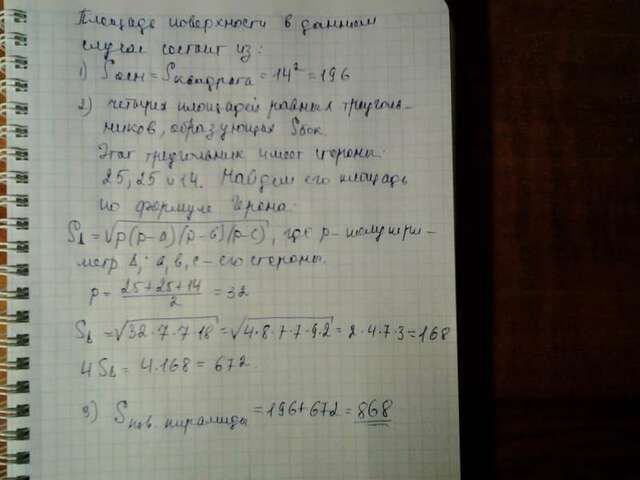 Площадь поверхности в данном
случае состоит из:
1) Sосн = Sквадрата = 14² = 196
2) четырёх площадей равных треуголь-
ников, образующих Sбок.
Этот треугольник имеет стороны:
25, 25 и 14. Найдем его площадь
по формуле Герона:
SΔ = √p(p-a)(p-b)(p-c), где p - полупери-
метр Δ; a, b, c - его стороны.
p = 25+25+14/2 = 32
SΔ = √32·7·7·18 = √4·8·7·7·9·2 = 2·4·7·3 = 168
4SΔ = 4·168 = 672
3) Sпов. пирамиды = 196+672 = 868